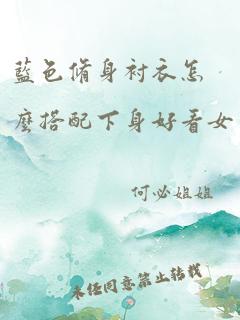 蓝色修身衬衣怎
麼搭配下身好看女
何必姐姐
未经同意禁止转载